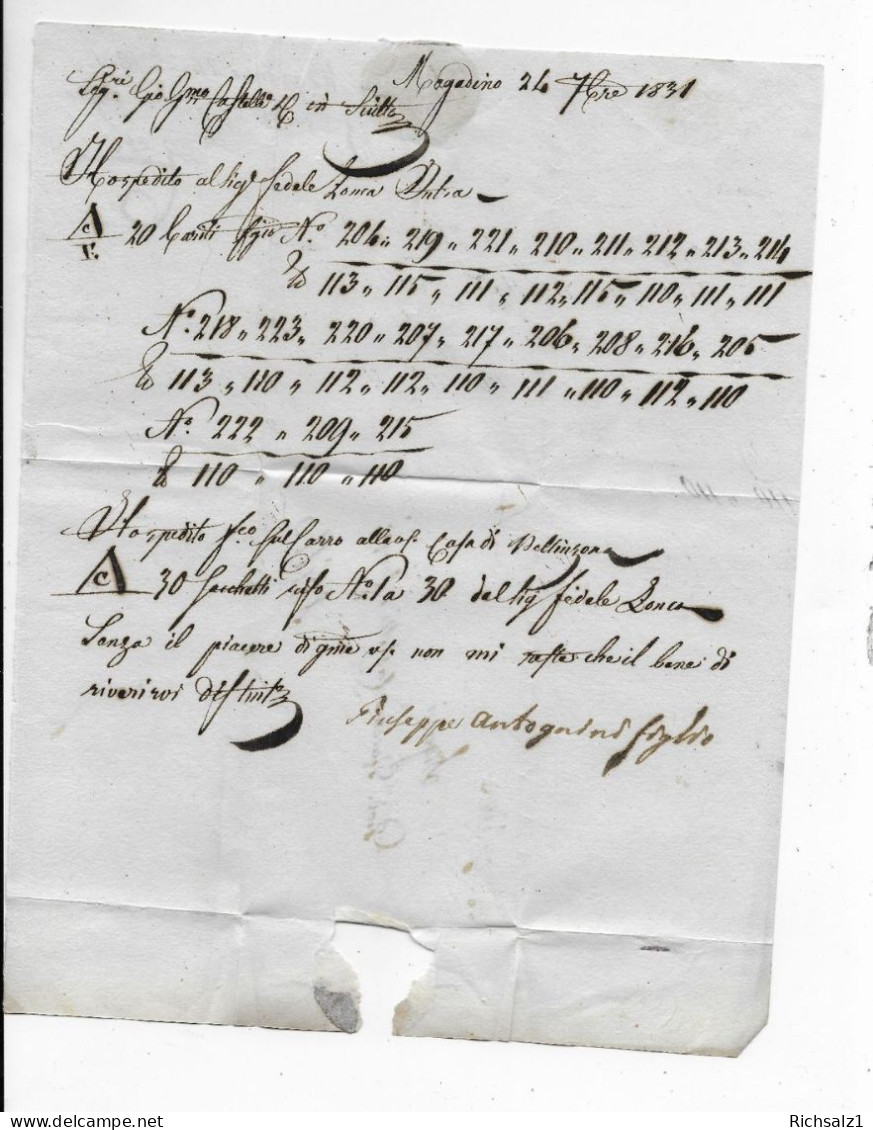 Magadino 24 7bre 1831
Sigri Gio Gmo Castell
Ho spedito al Sigr fedele Zonca Intra
A
C
F.
20 No. 204 „ 219 „ 221 „ 210 „ 211 „ 212 „ 213 „ 214
113 „ 115 „ 111 „ 112 „ 115 „ 110 „ 111 „ 111
No. 218 „ 223 „ 220 „ 207 „ 217 „ 206 „ 208 „ 216 „ 205
113 „ 110 „ 112 „ 112 „ 110 „ 111 „ 110 „ 112 „ 110
No. 222 „ 209 „ 215
110 „ 110 „ 110
Ho spedito fco Sul Carro alla Casa di Bellinzona
A
C
30 Sacchetti riso No. 1 a 30 del Sig fedele Zonca
Senza il piacere non mi resta che il bene di
riverirvi distinte
Giuseppe Antognini figlio
Richsalz1